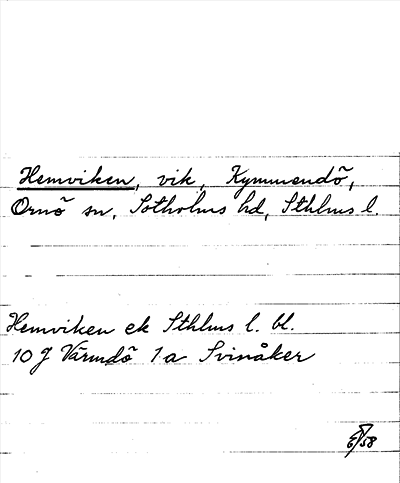 Hemviken, vik, Kymmendö,
Ornö sn, Sotholms hd, Sthlms l.
Hemviken ek Sthlms l. bl.
10 J Värmdö 1a Svinåker